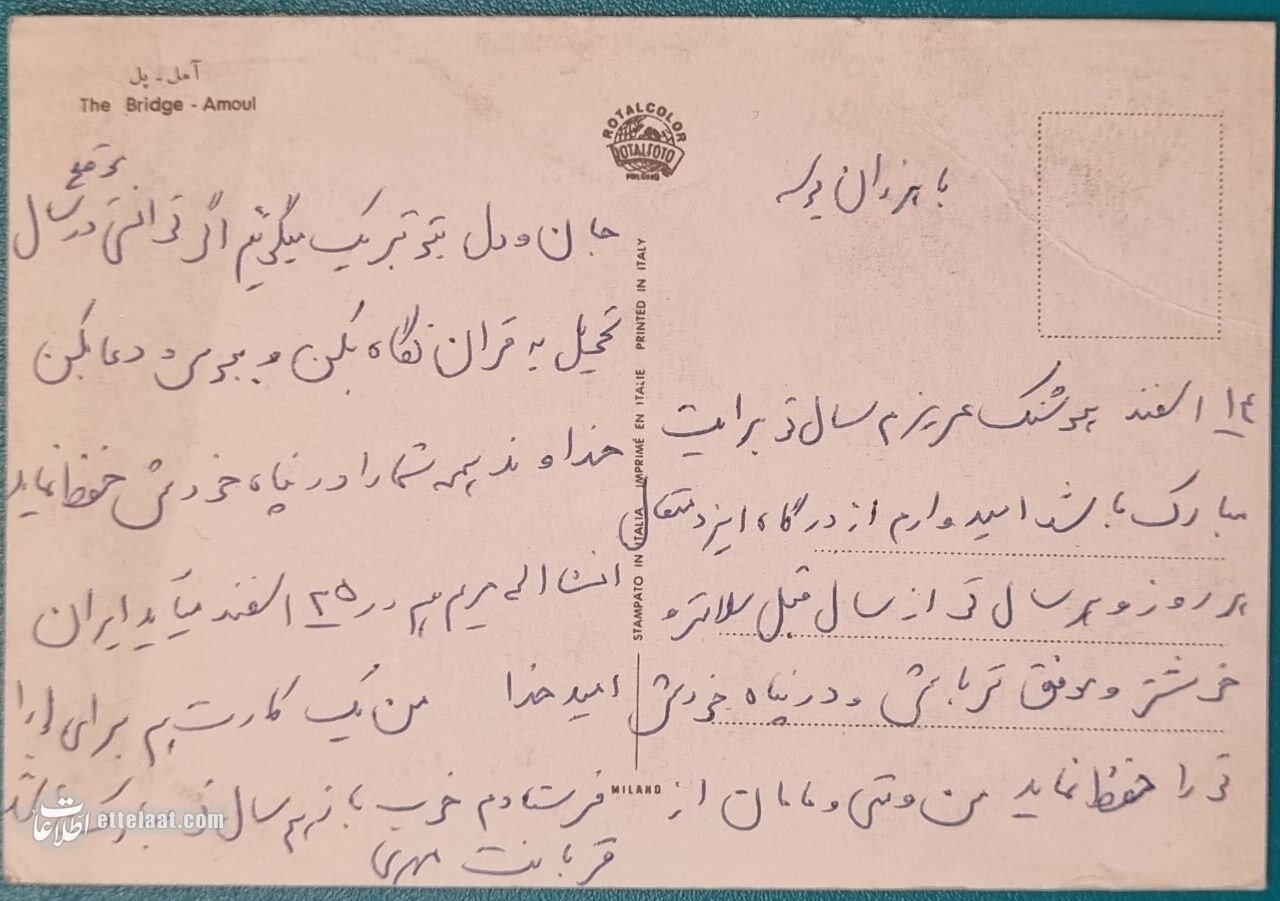 آمل - پل
The Bridge - Amoul
ROTALCOLOR
ROTALFOTO
MILANO
با هزران بوسه
۱۴ اسفند هوشنگ عزیزم سال نو برایت
مبارک باشد امیدوارم از درگاه ایزد متعال
هر روز و هر سال نو از سال قبل سلامتر و
خوشتر و موفق تر باشی و در پناه خودش
تو را حفظ نماید من و تقی و مامان از
جان و دل بتو تبریک میگوئیم اگر توانستی در سال
موقع
تحویل به قران نگاه بکن و ببوس و دعا بکن
خداوند همه شما را در پناه خودش حفظ نماید
انشاالله مریم هم در ۲۵ اسفند میآید ایران
امید خدا من یک کارت هم برای
فرستادم خوب باز هم سال نو مبارک باشد
قربانت مهری
STAMPATO IN ITALIA IMPRIMÉ EN ITALIE PRINTED IN ITALY
MILANO
اطلاعات ettelaat.com